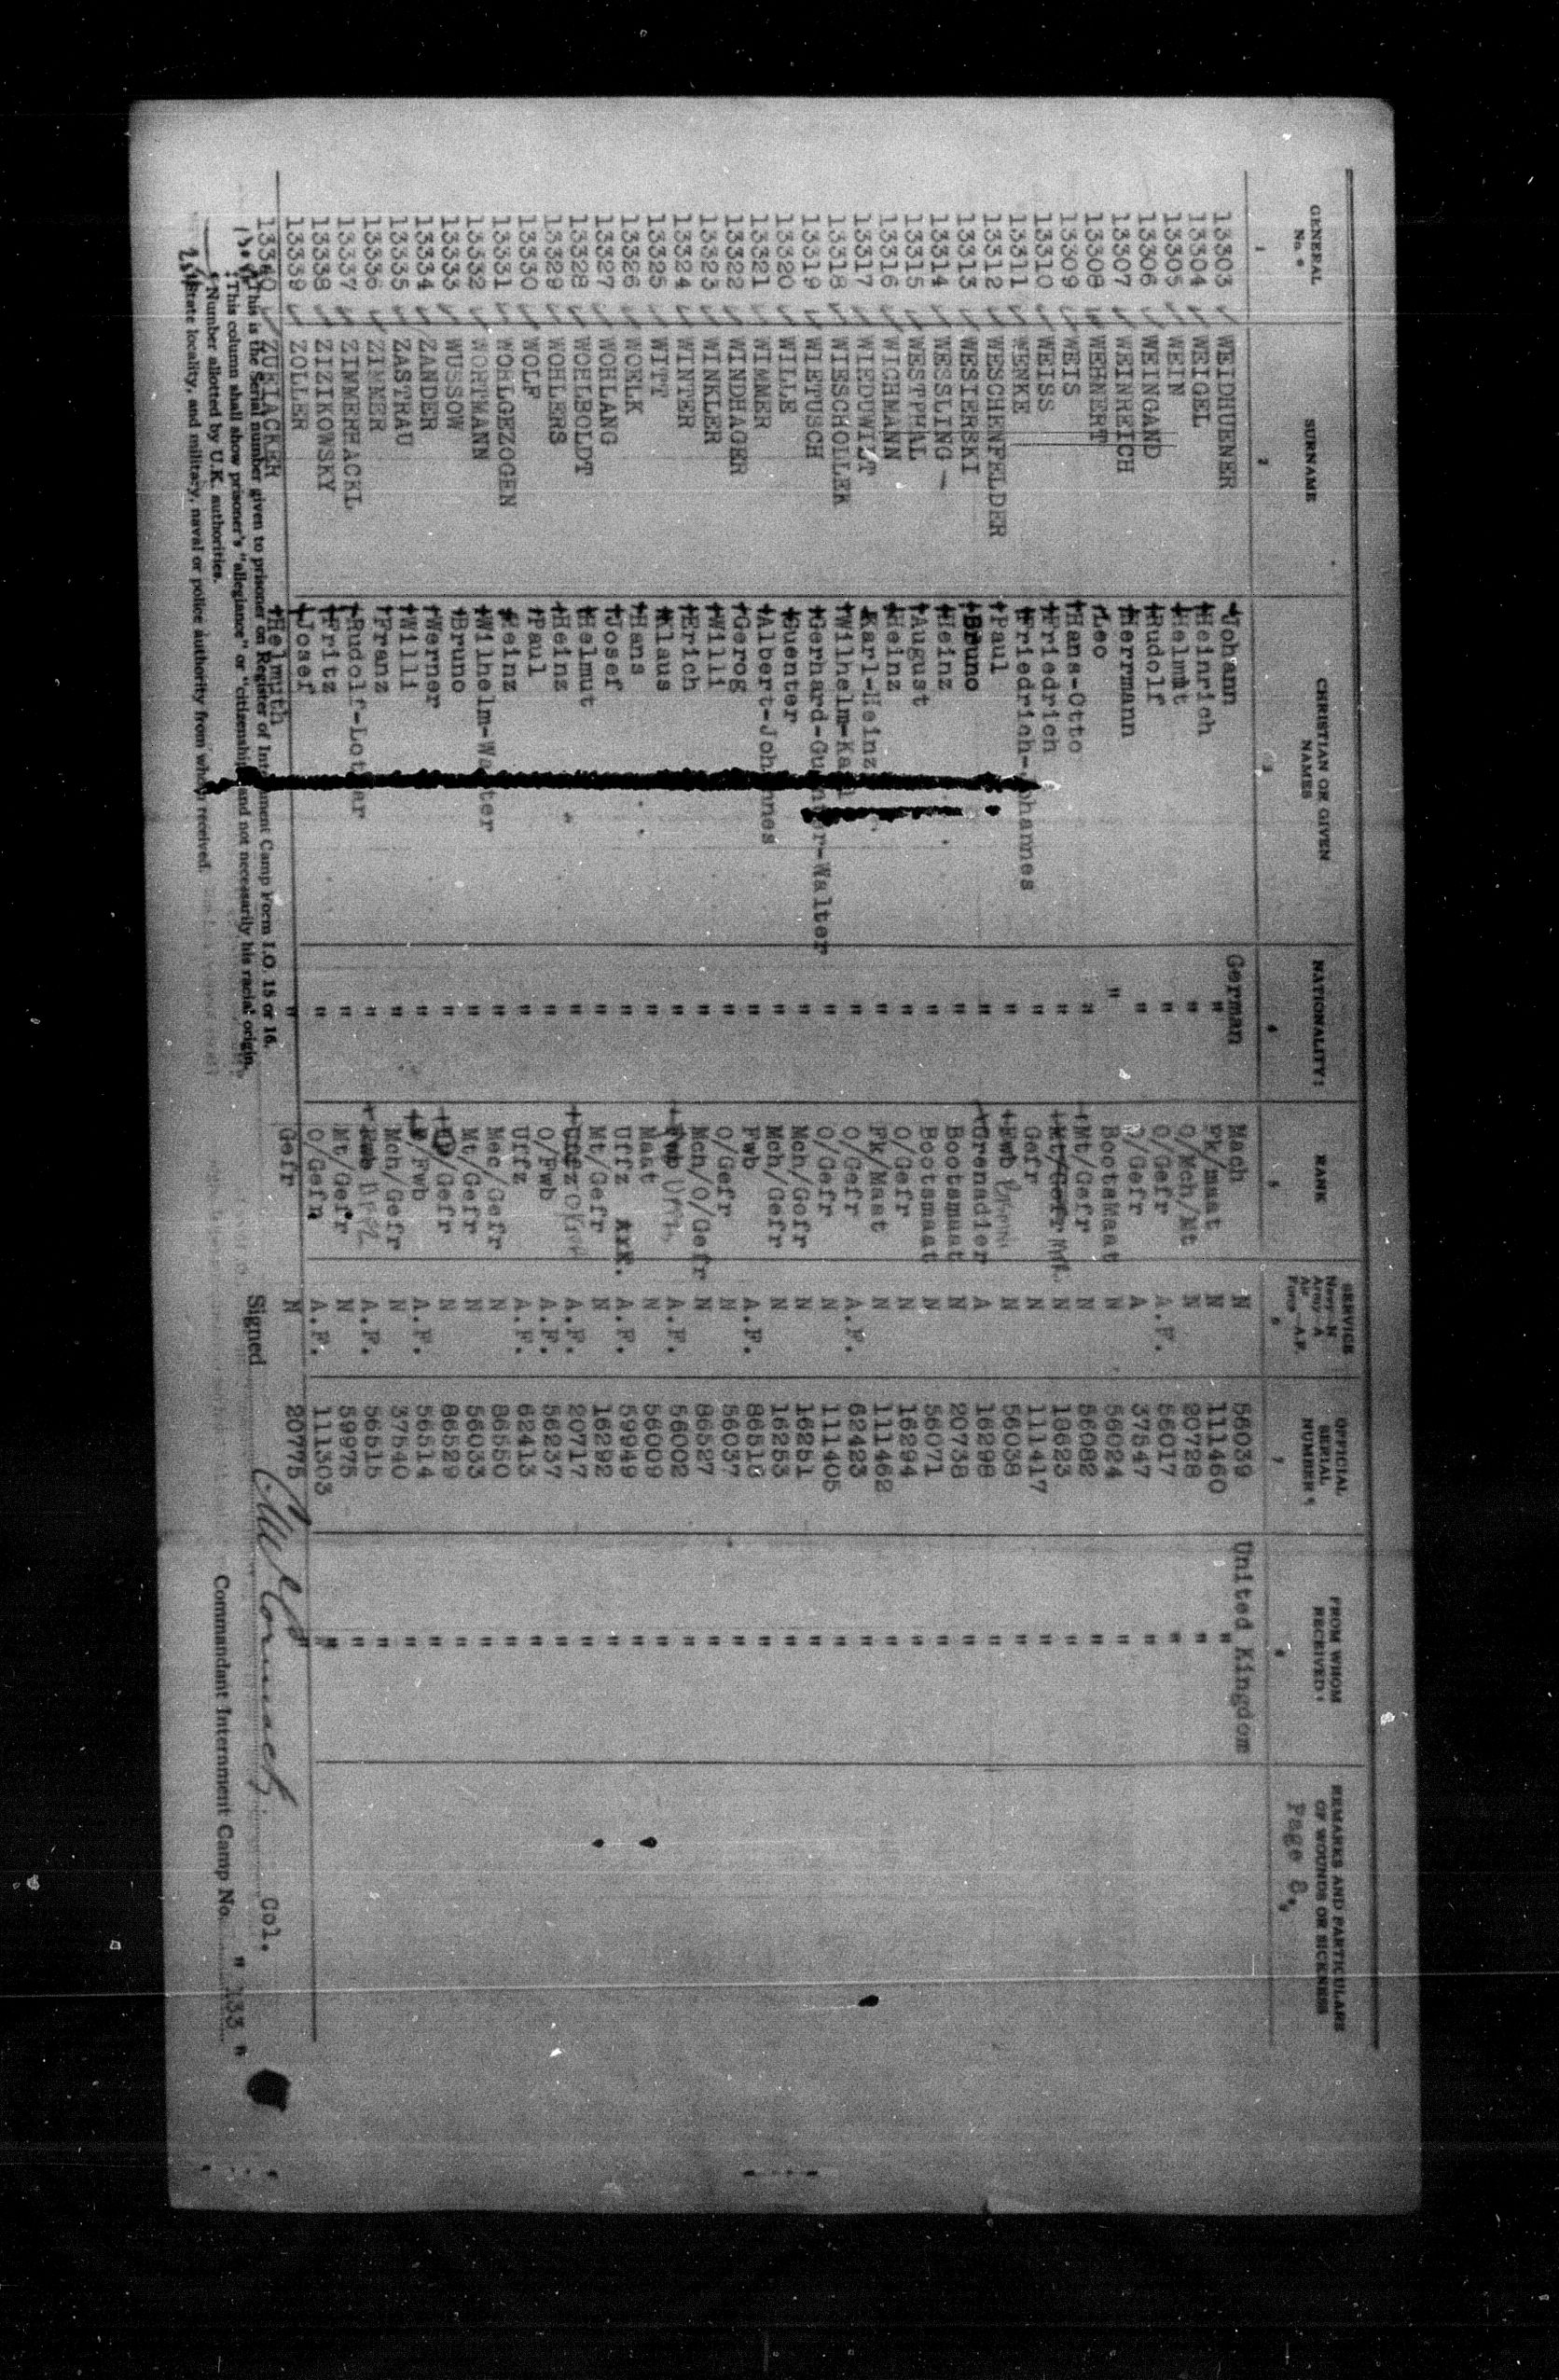 GENERAL No.* SURNAME CHRISTIAN OR GIVEN NAMES NATIONALITY‡ RANK SERVICE Navy—N Army—A Air Force—A.F. OFFICIAL SERIAL NUMBER¶ FROM WHOM RECEIVED§ REMARKS AND PARTICULARS OF WOUNDS OR SICKNESS
1 2 3 4 5 6 7 8 Page 8.
13303 WEIDHUENER Johann German Mach N 56039 United Kingdom
13304 WEIGEL Heinrich " Fk/maat N 111460 "
13305 WEIN Helmut " O/Mch/Mt N 20728 "
13306 WEINGAND Rudolf " O/Gefr A.F. 56017 "
13307 WEINREICH Herrmann " O/Gefr A 37547 "
13308 WEHNERT Leo " BootsMaat N 56024 "
13309 WEIS Hans-Otto " Mt/Gefr N 56082 "
13310 WEISS Friedrich " Mt/Gefr N 18623 "
13311 WENKE Friedrich-Johannes " Gefr N 111417 "
13312 WESCHENFELDER Paul " Fwb N 56038 "
13313 WESIERSKI Bruno " Grenadier A 16298 "
13314 WESSLING Heinz " Bootsmaat N 20738 "
13315 WESTPHAL August " Bootsmaat N 56071 "
13316 WICHMANN Heinz " O/Gefr N 16294 "
13317 WIEDUWILT Karl-Heinz " Fk/Maat N 111462 "
13318 WIESCHOLLEK Wilhelm-Karl " O/Gefr A.F. 62423 "
13319 WIETUSCH Gerhard-Guenter-Walter " O/Gefr N 111405 "
13320 WILLE Guenter " Mch/Gefr N 16251 "
13321 WIMMER Albert-Johannes " Mch/Gefr N 16253 "
13322 WINDHAGER Gerog " Fwb A.F. 86518 "
13323 WINKLER Willi " O/Gefr N 56037 "
13324 WINTER Erich " Mch/O/Gefr N 86527 "
13325 WITT Klaus " Fwb A.F. 56002 "
13326 WOELK Hans " Maat N 56009 "
13327 WOHLANG Josef " Uffz A.F. 59949 "
13328 WOHLBOLDT Helmut " Mt/Gefr N 16292 "
13329 WOHLERS Heinz " Uffz A.F. 20717 "
13330 WOLF Paul " O/Fwb A.F. 56237 "
13331 WOHLGEZOGEN Heinz " Uffz A.F. 62413 "
13332 WORTMANN Wilhelm-Walter " Mec/Gefr N 86550 "
13333 WUSSOW Bruno " Mt/Gefr N 56033 "
13334 ZANDER Werner " /Gefr N 86529 "
13335 ZASTRAU Willi " /Fwb A.F. 56514 "
13336 ZIMMER Franz " Mch/Gefr N 37540 "
13337 ZIMMERHACKL Rudolf-Lothar " Fwb A.F. 56515 "
13338 ZIZIKOWSKY Fritz " Mt/Gefr N 59975 "
13339 ZOLLER Josef " O/Gefr A.F. 111303 "
13340 ZURIACKER Helmuth " Gefr N 20775 "
*This is the Serial number given to prisoner on Register of Internment Camp Form I.O. 15 or 16.
‡This column shall show prisoner's "allegiance" or "citizenship" and not necessarily his racial origin.
¶Number allotted by U.K. authorities.
§State locality, and military, naval or police authority from whom received.
Signed Col.
Commandant Internment Camp No. " 133 "